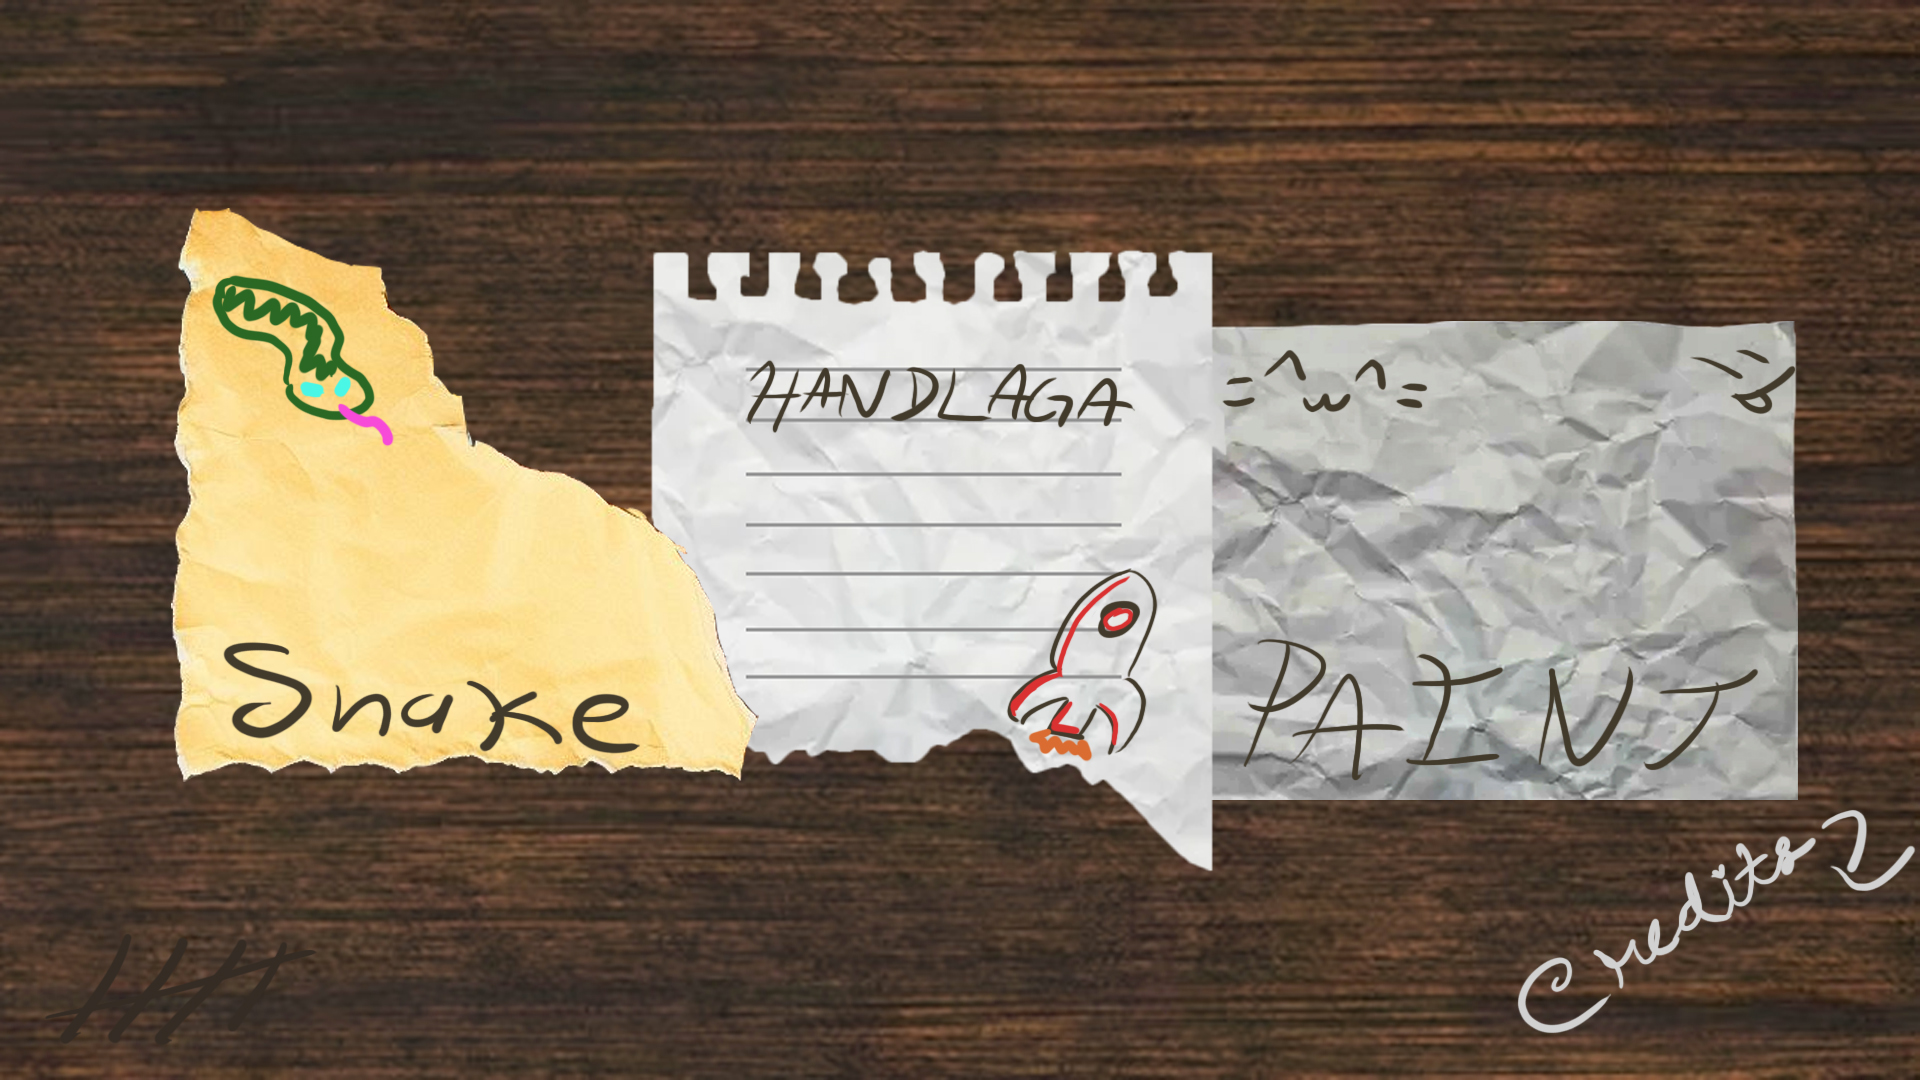 Snake
HANDLAGA
=^w^=
PAINT
Credits